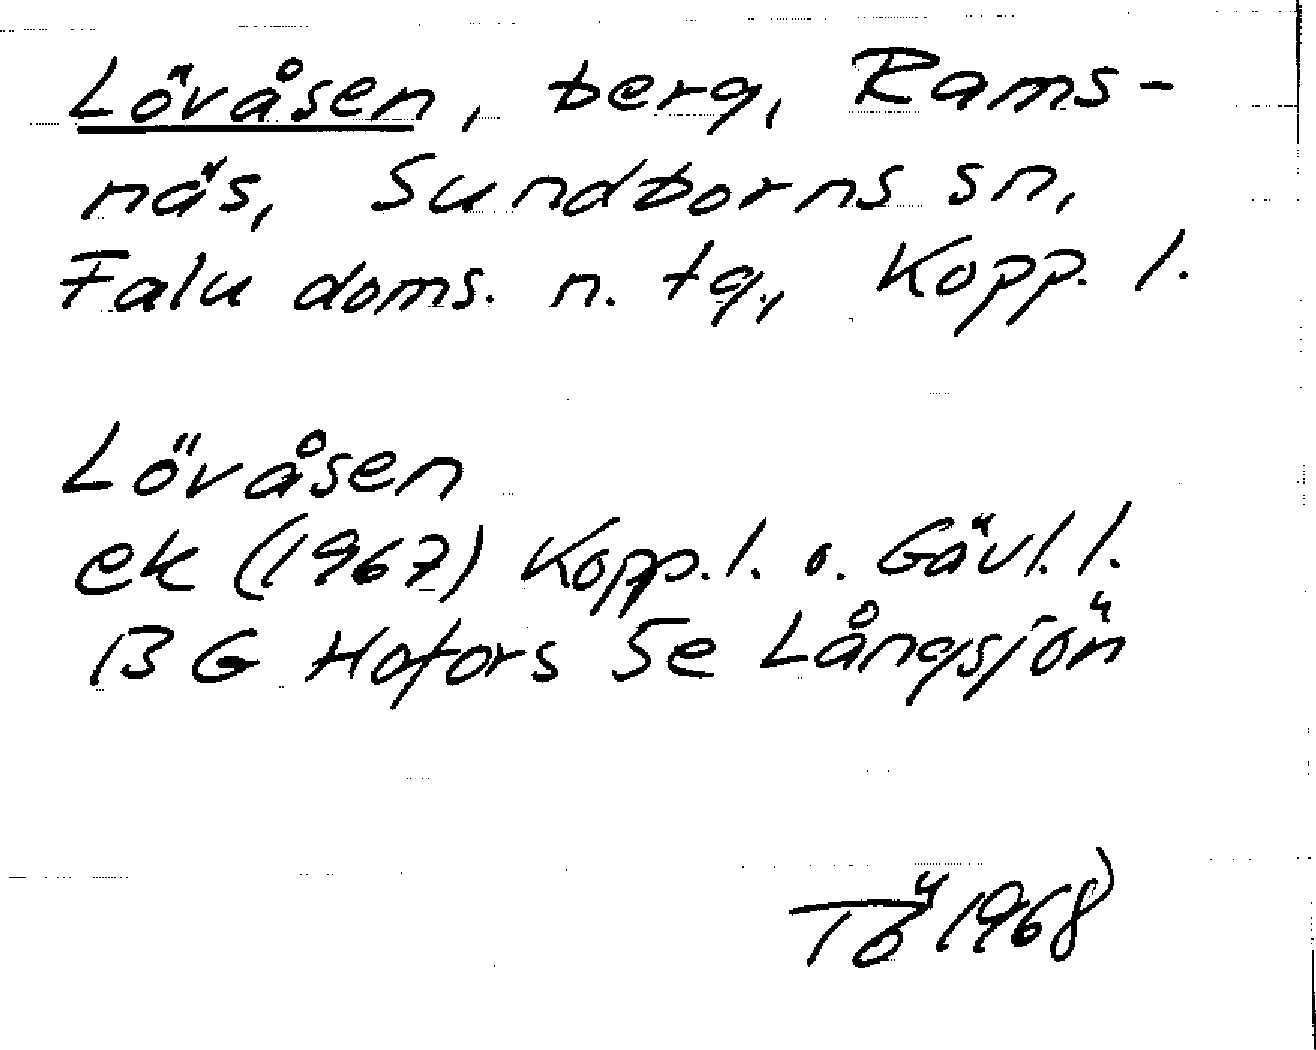 Lövåsen, berg, Rams-
näs, Sundborns sn,
Falu doms. n. tg., Kopp. l.
Lövåsen
ek (1967) Kopp. l. o. Gävl. l.
BG Hofors 5e Långsjön
TÖ 1968